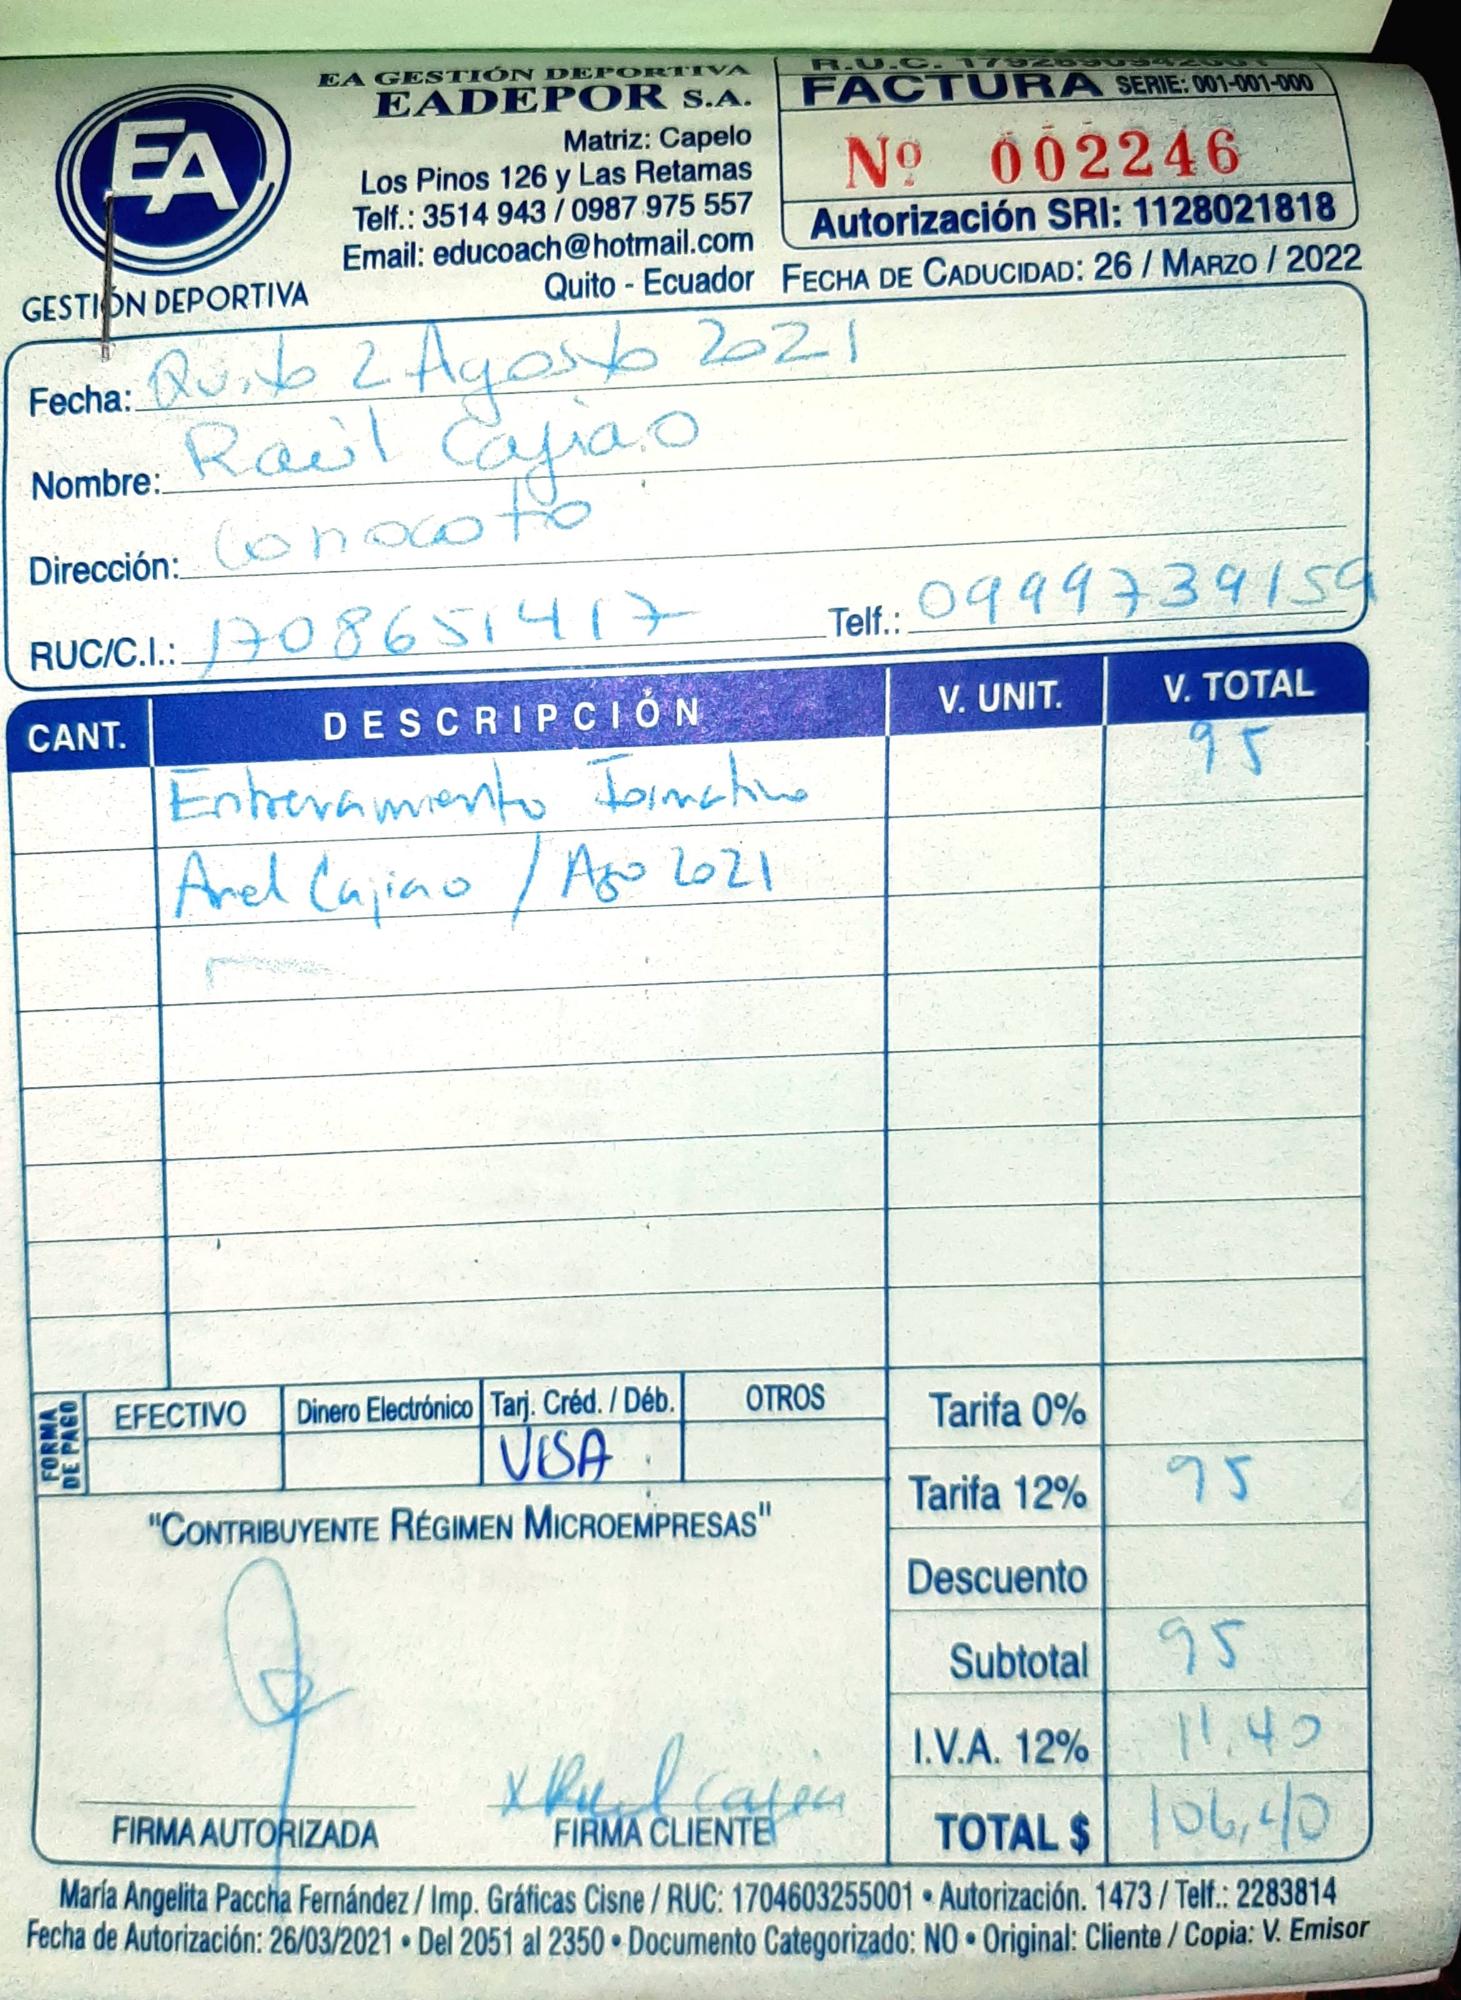 EA
GESTIÓN DEPORTIVA
EA GESTIÓN DEPORTIVA
EADEPOR S.A.
Matriz: Capelo
Los Pinos 126 y Las Retamas
Telf.: 3514 943 / 0987 975 557
Email: educoach@hotmail.com
Quito - Ecuador
R.U.C.
FACTURA SERIE: 001-001-000
Nº 002246
Autorización SRI: 1128021818
FECHA DE CADUCIDAD: 26 / MARZO / 2022
Fecha: Quito 2 Agosto 2021
Nombre: Raúl Cajiao
Dirección: Conocoto
RUC/C.I.: 1708651417 Telf.: 0999739159
CANT. DESCRIPCIÓN V. UNIT. V. TOTAL
Entrenamiento Formativo 95
Anel Cajiao / Ago 2021
FORMA DE PAGO
EFECTIVO Dinero Electrónico Tarj. Créd. / Déb. OTROS
VISA
Tarifa 0%
Tarifa 12% 95
Descuento
Subtotal 95
I.V.A. 12% 11,40
TOTAL $ 106,40
"CONTRIBUYENTE RÉGIMEN MICROEMPRESAS"
x Raul Cajiao
FIRMA AUTORIZADA FIRMA CLIENTE
María Angelita Paccha Fernández / Imp. Gráficas Cisne / RUC: 1704603255001 • Autorización. 1473 / Telf.: 2283814
Fecha de Autorización: 26/03/2021 • Del 2051 al 2350 • Documento Categorizado: NO • Original: Cliente / Copia: V. Emisor